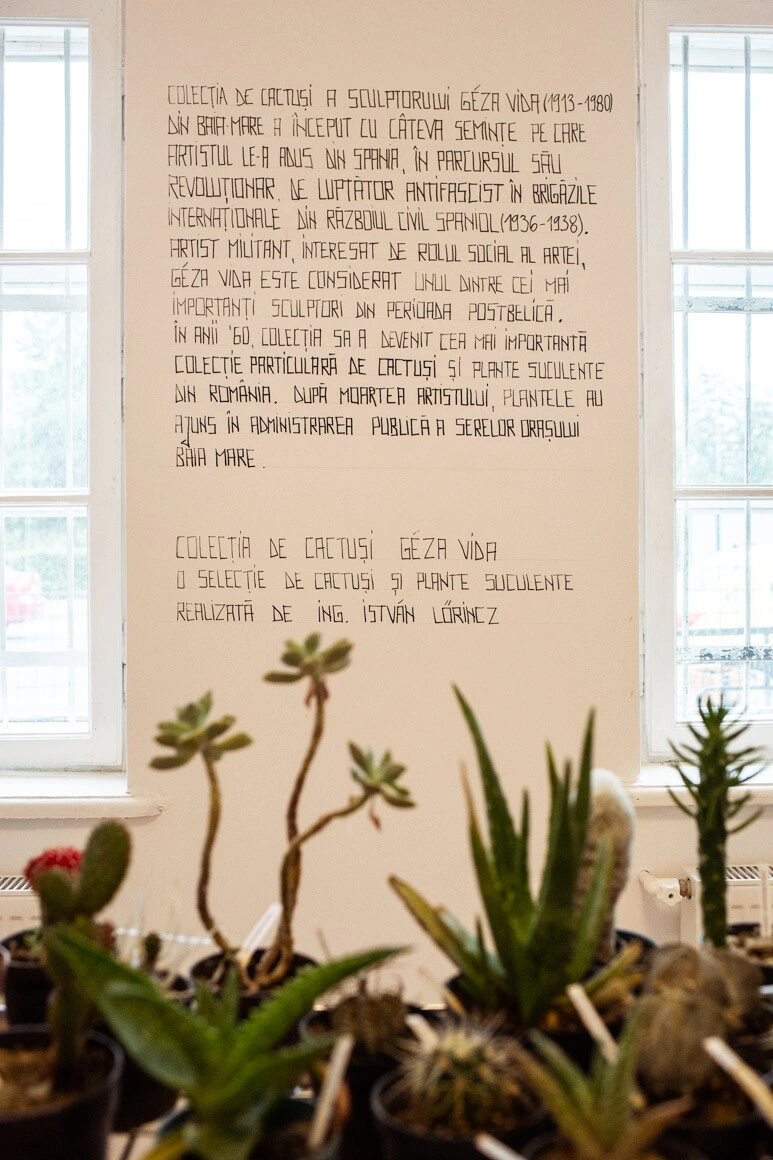 COLECȚIA DE CACTUȘI A SCULPTORULUI GÉZA VIDA (1913-1980)
DIN BAIA-MARE A ÎNCEPUT CU CÂTEVA SEMINȚE PE CARE
ARTISTUL LE-A ADUS DIN SPANIA, ÎN PARCURSUL SĂU
REVOLUȚIONAR DE LUPTĂTOR ANTIFASCIST ÎN BRIGĂZILE
INTERNAȚIONALE DIN RĂZBOIUL CIVIL SPANIOL (1936-1938).
ARTIST MILITANT, INTERESAT DE ROLUL SOCIAL AL ARTEI,
GÉZA VIDA ESTE CONSIDERAT UNUL DINTRE CEI MAI
IMPORTANȚI SCULPTORI DIN PERIOADA POSTBELICĂ.
ÎN ANII '60, COLECȚIA SA A DEVENIT CEA MAI IMPORTANTĂ
COLECȚIE PARTICULARĂ DE CACTUȘI ȘI PLANTE SUCULENTE
DIN ROMÂNIA. DUPĂ MOARTEA ARTISTULUI, PLANTELE AU
AJUNS ÎN ADMINISTRAREA PUBLICĂ A SERELOR ORAȘULUI
BAIA MARE.
COLECȚIA DE CACTUȘI GÉZA VIDA
O SELECȚIE DE CACTUȘI ȘI PLANTE SUCULENTE
REALIZATĂ DE ING. ISTVÁN LŐRINCZ